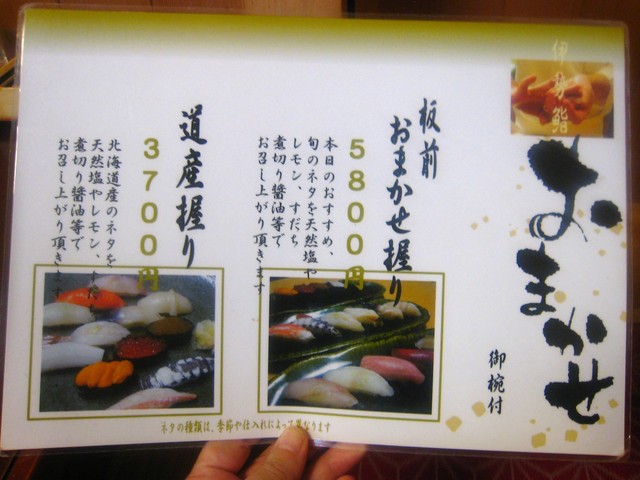 伊勢鮨
おまかせ
御椀付
板前
おまかせ握り
5800円
本日のおすすめ、
旬のネタを天然塩や
レモン、すだち
煮切り醤油等で
お召し上がり頂きます
道産握り
3700円
北海道産のネタを
天然塩やレモン、すだち
煮切り醤油等で
お召し上がり頂きます
ネタの種類は、季節や仕入れによって異なります